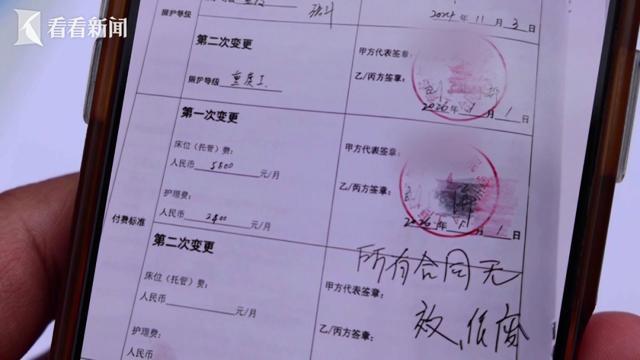 看看新闻
照护等级
2024年11月3日
第二次变更
甲方代表签章：
照护等级 重度I.
乙/丙方签章：
2026年1月1日
第一次变更
甲方代表签章：
床位（托管）费：
人民币 5800 元/月
乙/丙方签章：
护理费：
人民币 2400 元/月
2026年1月1日
付费标准
第二次变更
所有合同无
床位（托管）费：
甲方代表签章：
人民币 元/月
效、
护理费：
乙/丙方签章：
人民币